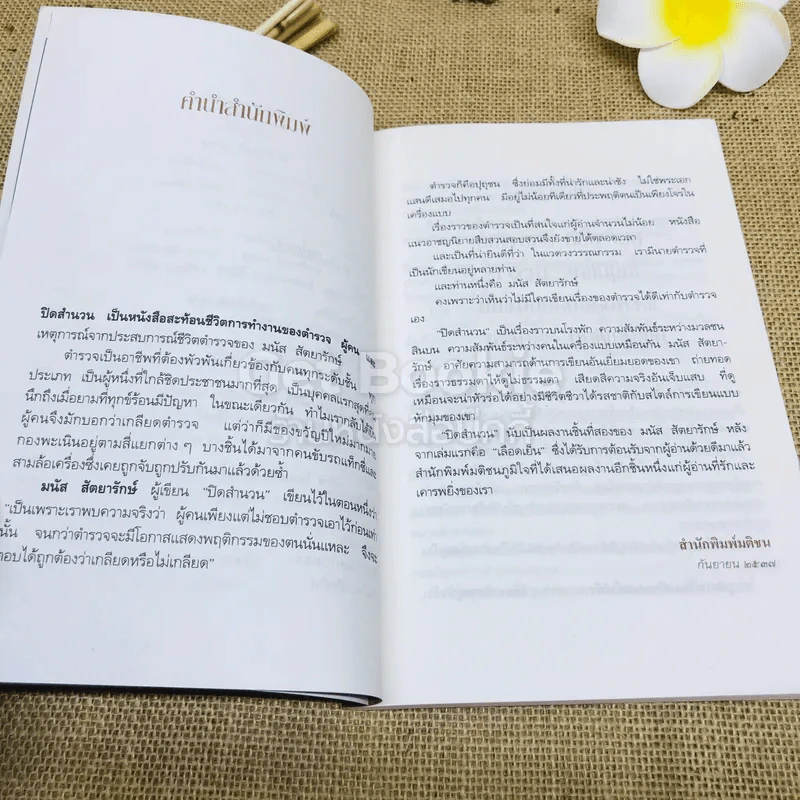 คำนำสำนักพิมพ์
ปิดสำนวน เป็นหนังสือสะท้อนชีวิตการทำงานของตำรวจ ผู้คน และ
เหตุการณ์จากประสบการณ์ชีวิตตำรวจของ มนัส สัตยารักษ์
ตำรวจเป็นอาชีพที่ต้องพัวพันเกี่ยวข้องกับคนทุกระดับชั้น ทุก
ประเภท เป็นผู้หนึ่งที่ใกล้ชิดประชาชนมากที่สุด เป็นบุคคลแรกสุดที่
นึกถึงเมื่อยามที่ทุกข์ร้อนมีปัญหา ในขณะเดียวกัน ทำไมเรากลับได้ยิน
ผู้คนจึงมักบอกว่าเกลียดตำรวจ แต่ว่าก็มีของขวัญปีใหม่มากมาย
กองพะเนินอยู่ตามสี่แยกต่าง ๆ บางชิ้นได้มาจากคนขับรถแท็กซี่และ
สามล้อเครื่องซึ่งเคยถูกจับถูกปรับกันมาแล้วด้วยซ้ำ
มนัส สัตยารักษ์ ผู้เขียน "ปิดสำนวน" เขียนไว้ในตอนหนึ่งว่า
"เป็นเพราะเราพบความจริงว่า ผู้คนเพียงแต่ไม่ชอบตำรวจเอาไว้ก่อนเท่า
นั้น จนกว่าตำรวจจะมีโอกาสแสดงพฤติกรรมของตนนั่นแหละ จึงจะ
ตอบได้ถูกต้องว่าเกลียดหรือไม่เกลียด"
ตำรวจก็คือปุถุชน ซึ่งย่อมมีทั้งที่น่ารักและน่าชัง ไม่ใช่พระเอก
แสนดีเสมอไปทุกคน มีอยู่ไม่น้อยทีเดียวที่ประพฤติตนเป็นเพียงโจรใน
เครื่องแบบ
เรื่องราวของตำรวจเป็นที่สนใจแก่ผู้อ่านจำนวนไม่น้อย หนังสือ
แนวอาชญนิยายสืบสวนสอบสวนจึงยังขายได้ตลอดเวลา
และเป็นที่น่ายินดีที่ว่า ในแวดวงวรรณกรรม เรามีนายตำรวจที่
เป็นนักเขียนอยู่หลายท่าน
และท่านหนึ่งคือ มนัส สัตยารักษ์
คงเพราะว่าเห็นว่าไม่มีใครเขียนเรื่องของตำรวจได้ดีเท่ากับตำรวจ
เอง
"ปิดสำนวน" เป็นเรื่องราวบนโรงพัก ความสัมพันธ์ระหว่างมวลชน
สินบน ความสัมพันธ์ระหว่างคนในเครื่องแบบเหมือนกัน มนัส สัตยา-
รักษ์ อาศัยความสามารถด้านการเขียนอันเยี่ยมยอดของเขา ถ่ายทอด
เรื่องราวธรรมดาให้ดูไม่ธรรมดา เสียดสีความจริงอันเจ็บแสบ ที่ดู
เหมือนจะน่าหัวร่อได้อย่างมีชีวิตชีวาได้รสชาติกับสไตล์การเขียนแบบ
หักมุมของเขา
"ปิดสำนวน" นับเป็นผลงานชิ้นที่สองของ มนัส สัตยารักษ์ หลัง
จากเล่มแรกคือ "เลือดเย็น" ซึ่งได้รับการต้อนรับจากผู้อ่านด้วยดีมาแล้ว
สำนักพิมพ์มติชนภูมิใจที่ได้เสนอผลงานอีกชิ้นหนึ่งแก่ผู้อ่านที่รักและ
เคารพยิ่งของเรา
สำนักพิมพ์มติชน
กันยายน ๒๕๓๗